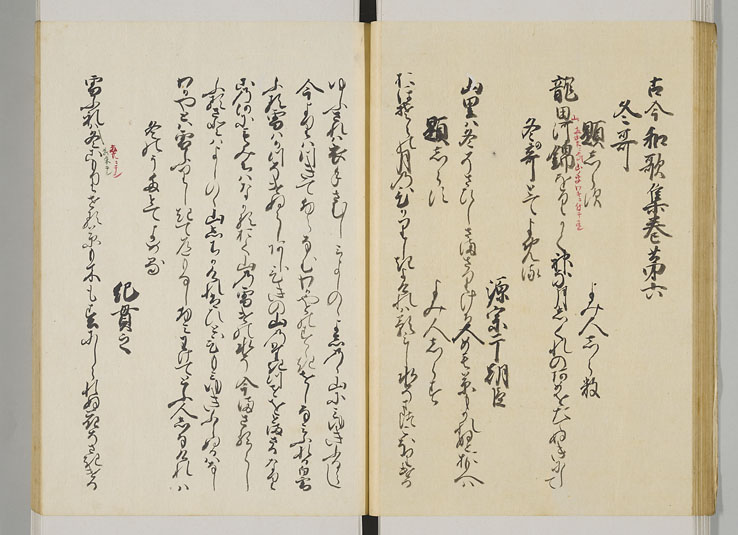 古今和歌集巻第六
冬哥
題しらす　よみ人しらす
龍田河錦をりかく神な月しくれのあめをたてぬきにして
冬の哥とてよめる
源宗于朝臣
山里は冬そさひしさまさりける人めも草もかれぬとおもへは
題しらす　よみ人しらす
おほそらの月のひかりしきよけれは影みし水そまつこほりける
ゆふされは衣手さむしみよしのゝよしのゝ山にみゆきふるらし
今よりはつきてふらなむわかやとのすゝきをしなみふれる白雪
ふる雪はかつそけぬらしあしひきの山のたきつせをとまさるなり
此河にもみちはなかるおく山の雪けの水そ今まさるらし
ふるさとはよしのゝ山しちかけれはひとひもみゆきふらぬ日はなし
わかやとは雪ふりしきてみちもなしふみわけてとふ人しなけれは
冬のうたとてよめる
紀貫之
雪ふれは冬こもりせる草も木も春にしられぬ花そさきける